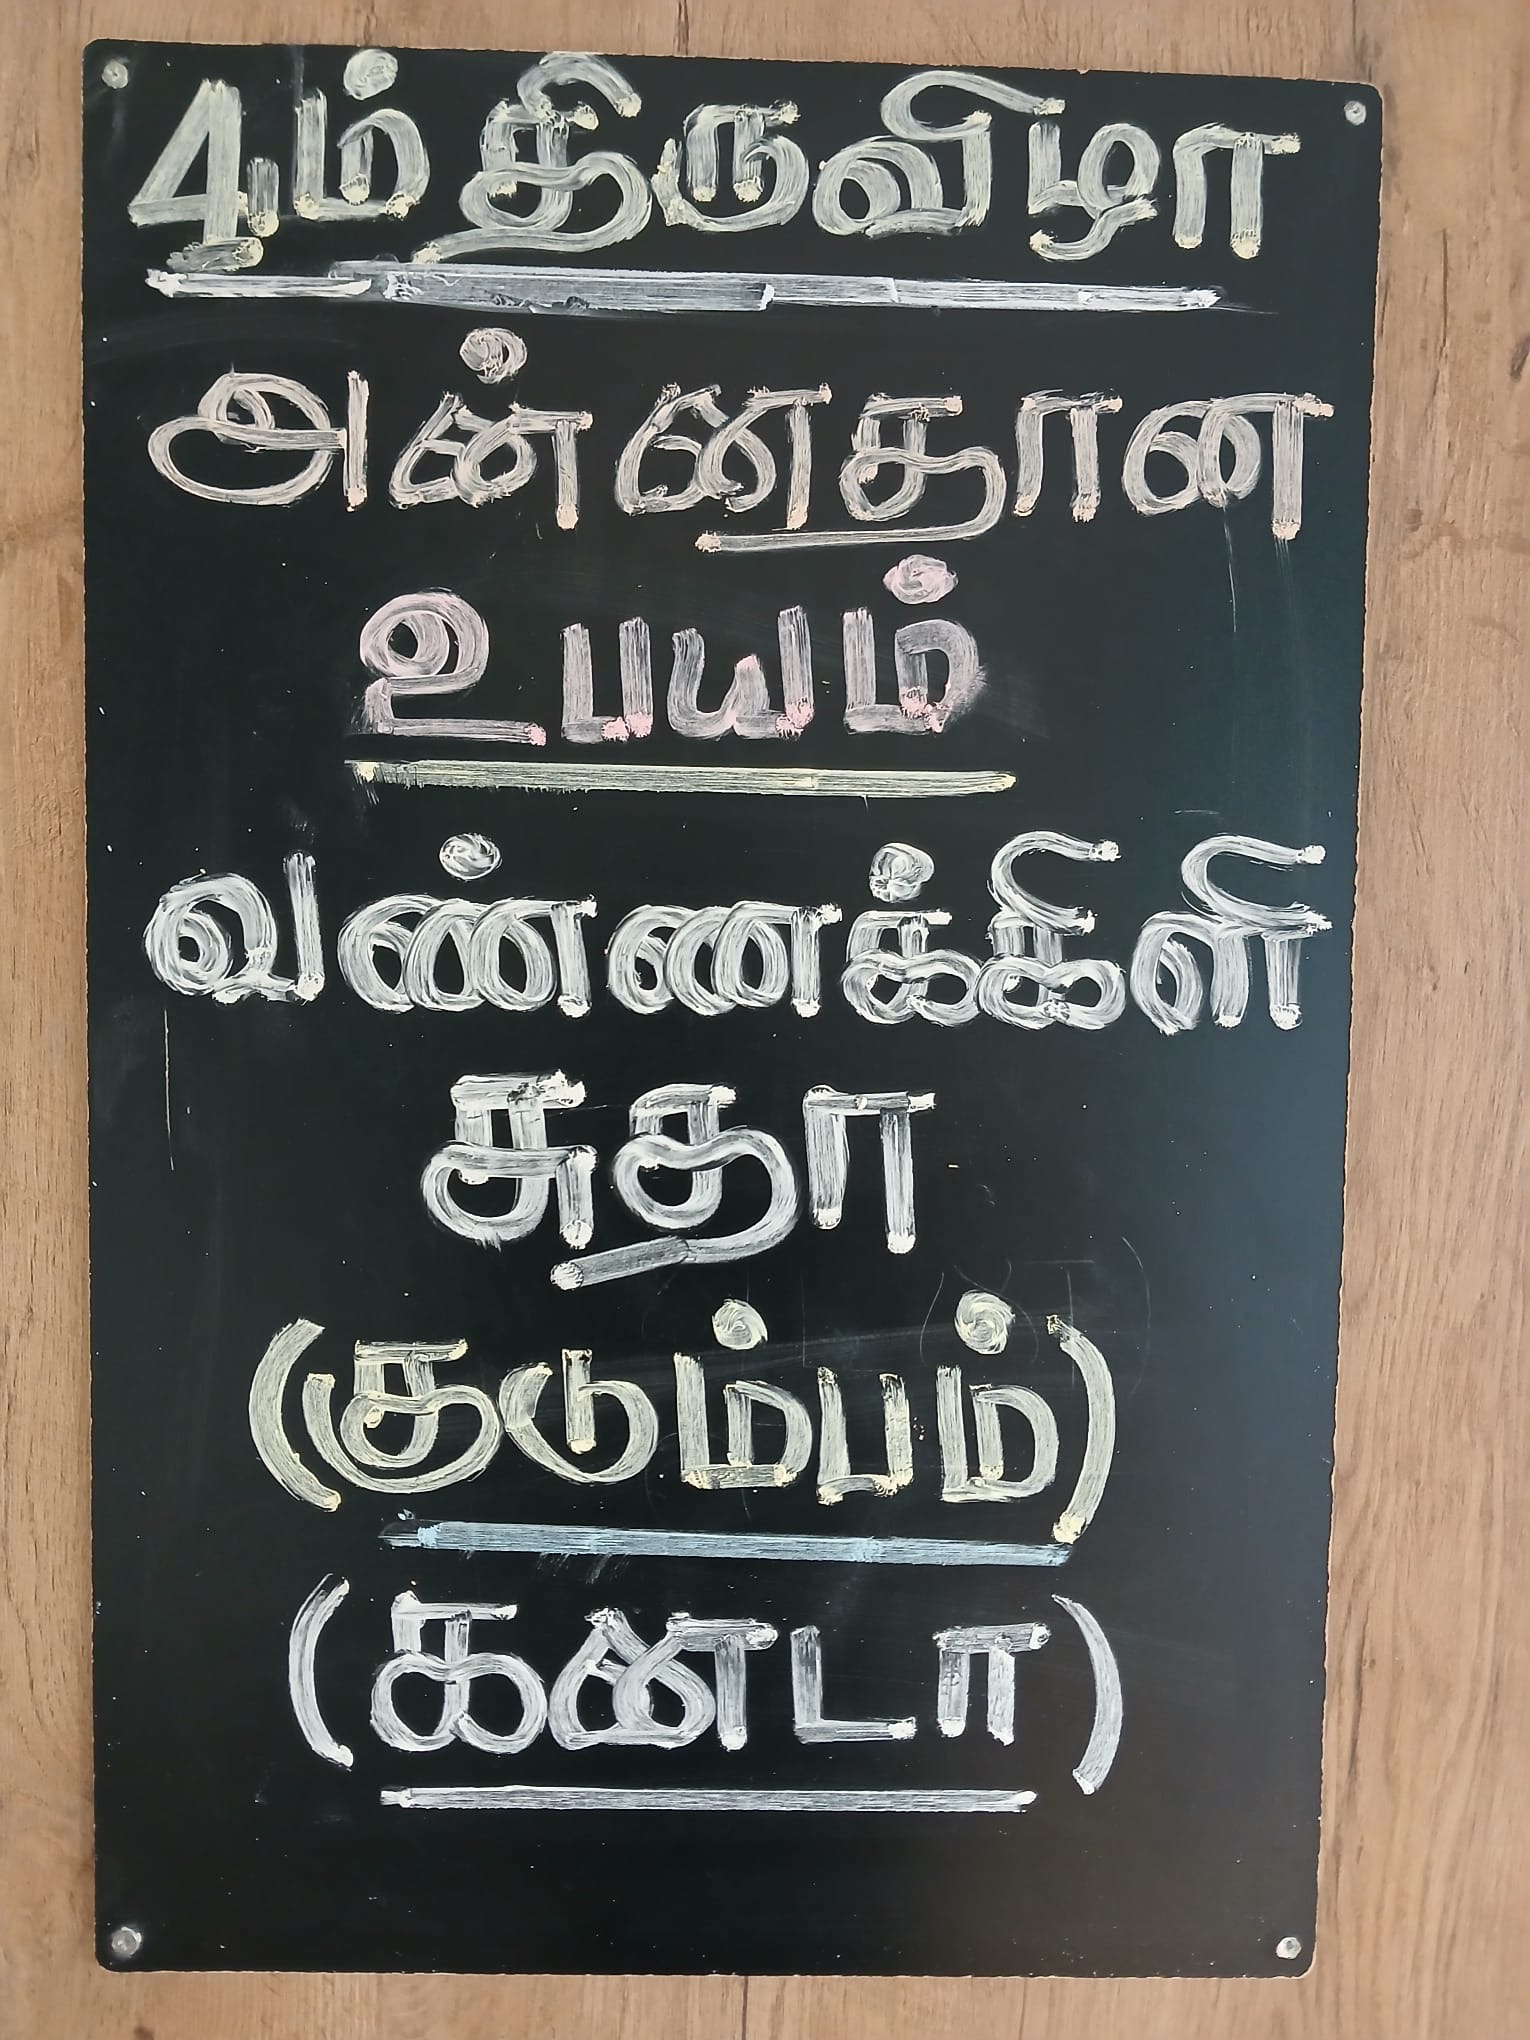 4ம் திருவிழா
அன்னதான
உபயம்
வண்ணக்கிளி
சுதா
(குடும்பம்)
(கனடா)